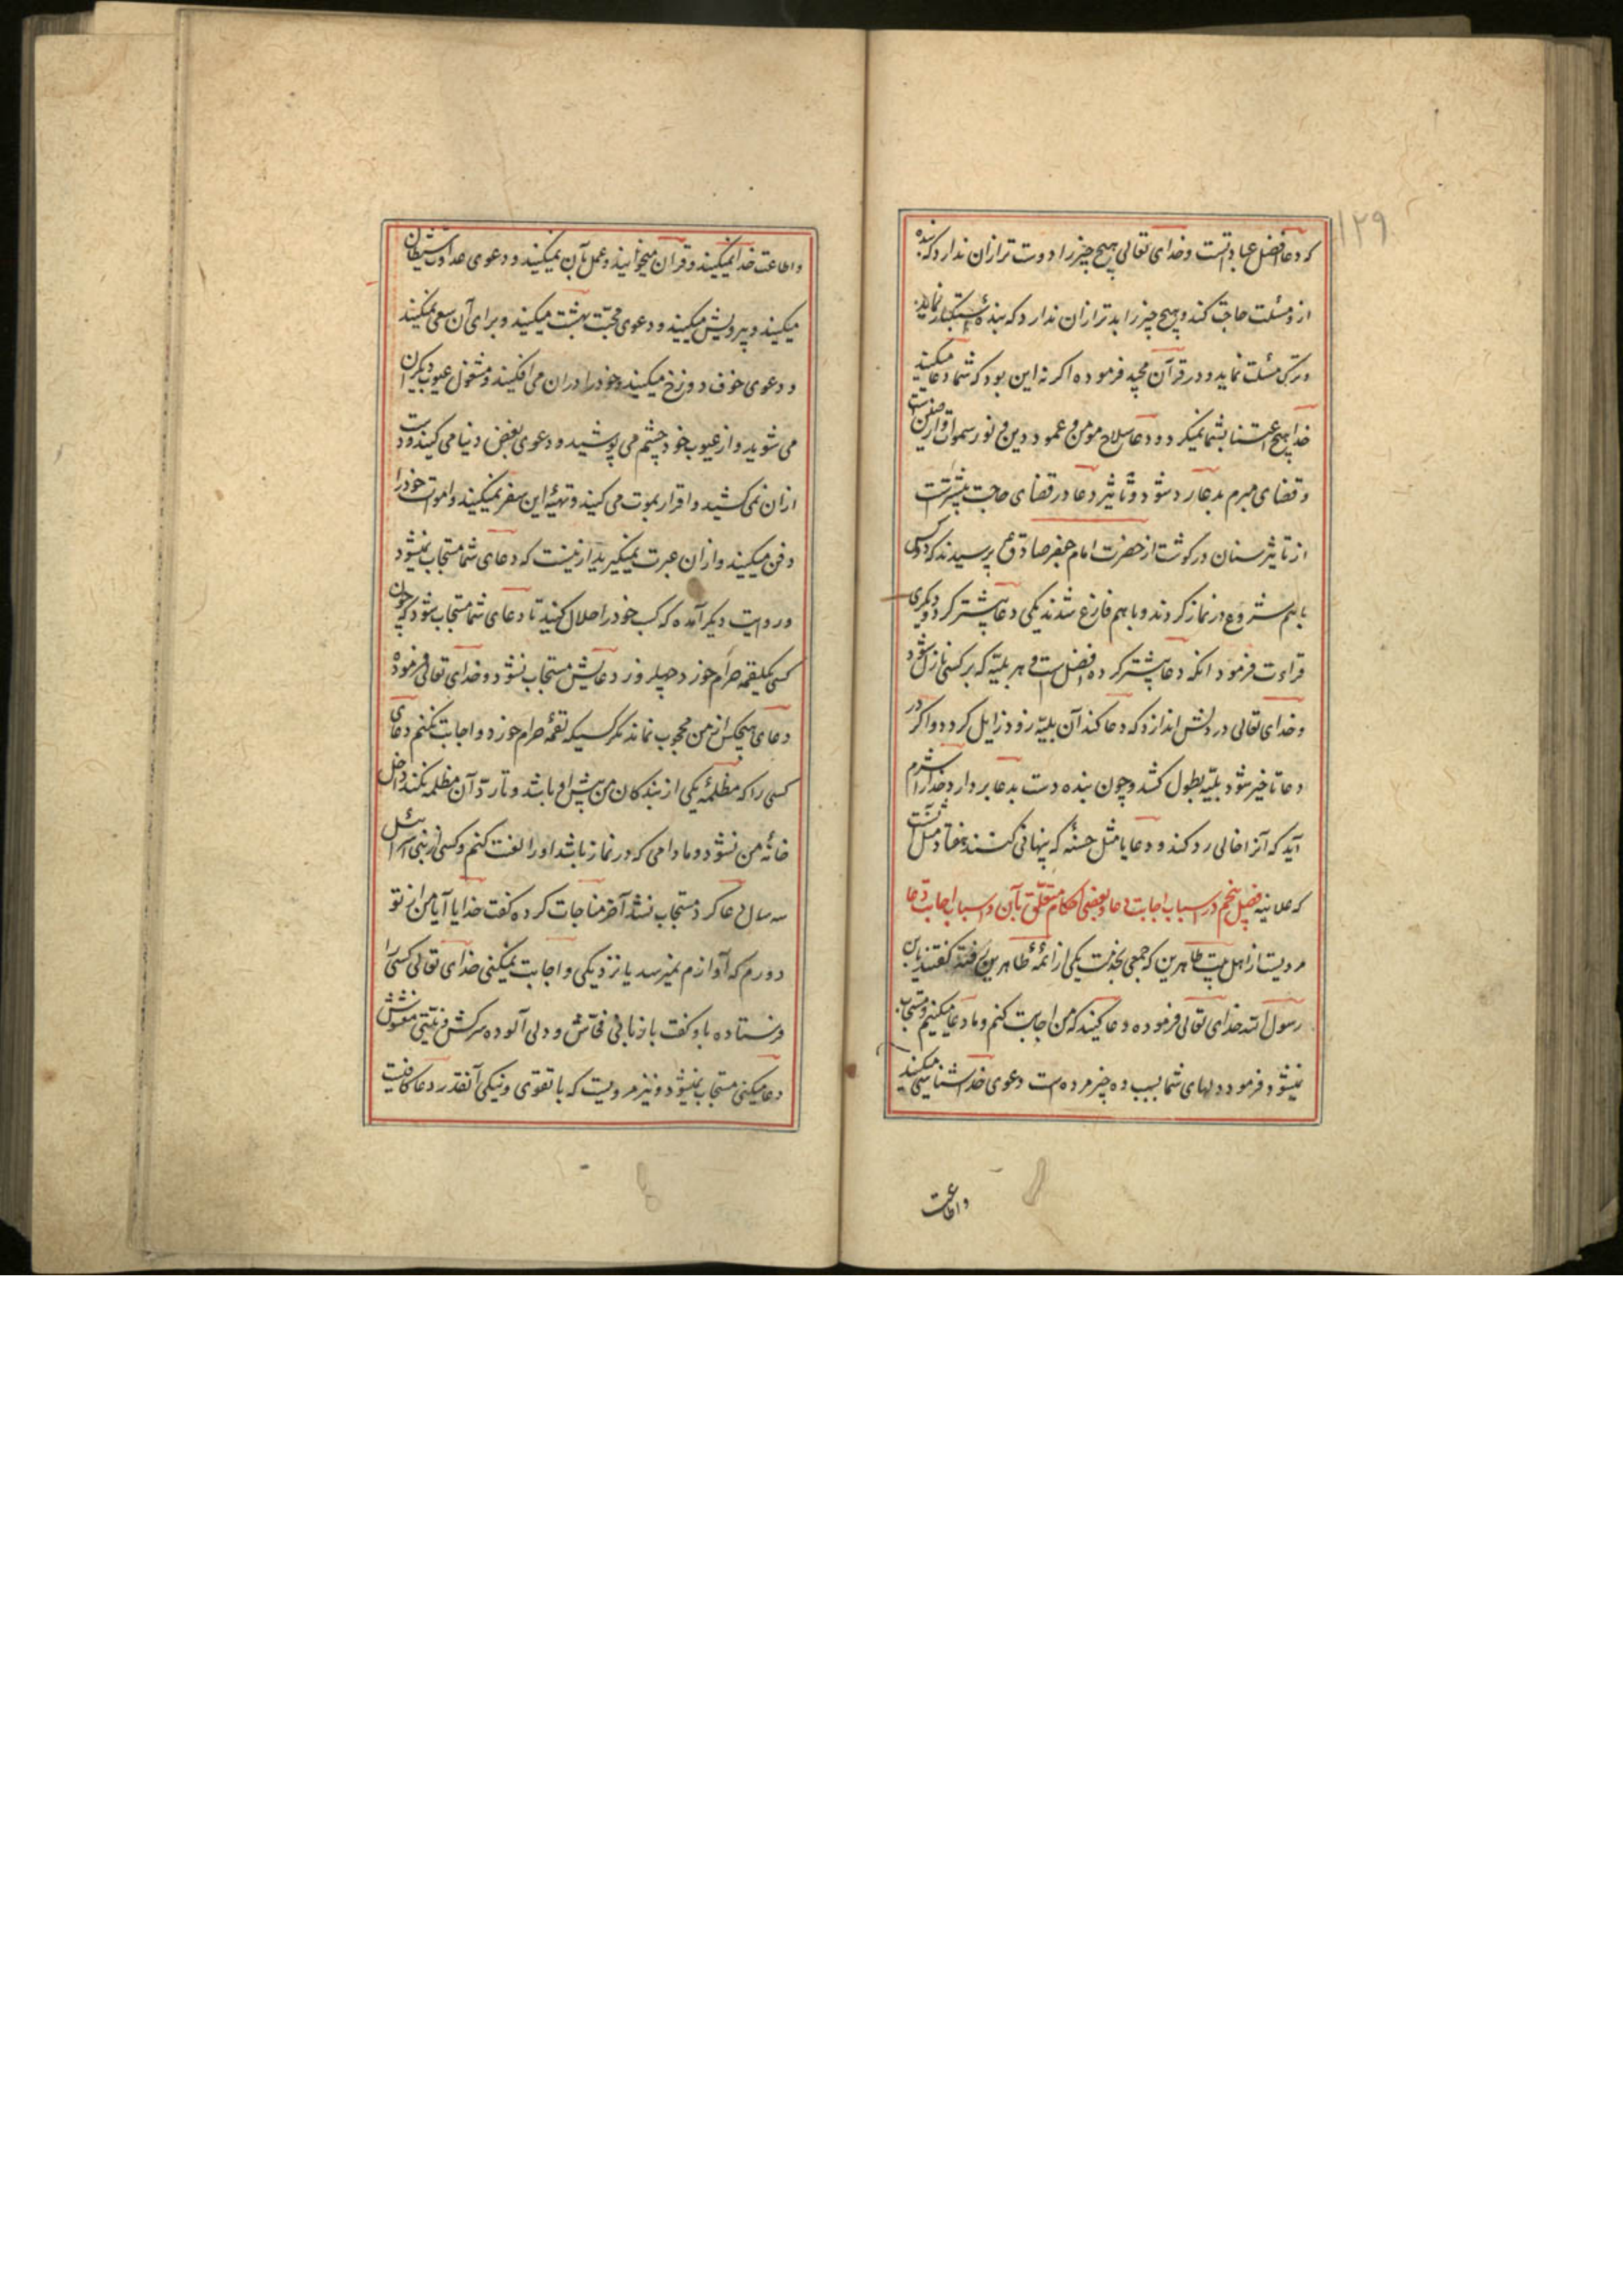 ۱۲۹
که دعا افضل عبادتست و خدای تعالی هیچ چیز را دوست تر ازان ندارد که بنده
ازو مسئلت حاجت کند و هیچ چیز را بدتر ازان ندارد که بنده استکبار نماید
و ترک مسئلت نماید و در قرآن مجید فرموده اگر نه این بود که شما دعا میکنید
خدا هیچ اعتنا بشما نمیکرد و دعا سلاح مومن و عمود دین و نور سموات و ارضین است
و قضای مبرم بدعا رد شود و تاثیر دعا در قضای حاجت بیشترست
از تاثیر سنان در گوشت از حضرت امام جعفر صادق ع پرسیدند که دو کس
با هم شروع در نماز کردند و با هم فارغ شدند یکی دعا بیشتر کرد و دیگری
قراءت فرمود انکه دعا بیشتر کرده افضل است و هر بلیّه که بر کسی نازل شود
و خدای تعالی در دلش اندازد که دعا کند آن بلیّه زود زایل گردد و اگر در
دعا تاخیر شود بلیّه بطول کشد و چون بنده دست بدعا بردارد خدا را شرم
آید که آنرا خالی رد کند و دعا یا مثل حسنه که پنهانی کنند هفتاد مثل آنست
که علانیه فصل پنجم در اسباب اجابت دعا و بعضی احکام متعلّق بآن و اسباب اجابت دعا
مرویست از اهل بیت طاهرین که جمعی بخدمت یکی از ائمّهٔ طاهرین رفته گفتند یابن
رسول الله خدای تعالی فرموده دعا کنید که من اجابت کنم و ما دعا میکنیم و مستجاب
نمیشود فرمود دلهای شما بسبب ده چیز مرده است دعوی خدا شناسی میکنید
و اطاعت
و اطاعت خدا نمیکنید و قرآن میخوانید و عمل بآن نمیکنید و دعوی عداوت شیطان
میکنید و پیرویش میکنید و دعوی محبّت بهشت میکنید و برای آن سعی نمیکنید
و دعوی خوف دوزخ میکنید و خود را دران می افکنید و مشغول عیوب دیگران
می شوید و از عیوب خود چشم می پوشید و دعوی بغض دنیا می کنید و دست
ازان نمی کشید و اقرار بموت می کنید و تهیّهٔ این سفر نمیکنید و اموات خود را
دفن میکنید و ازان عبرت نمیگیرید ازینست که دعای شما مستجاب نمیشود
و در روایت دیگر آمده که کسب خود را حلال کنید تا دعای شما مستجاب شود که چون
کسی یکلقمه حرام خورد چهل روز دعایش مستجاب نشود و خدای تعالی فرموده
دعای هیچکس از من محجوب نماند مگر کسیکه لقمهٔ حرام خورد و اجابت نکنم دعای
کسی را که مظلمهٔ یکی از بندگان من پیش او باشد و تا ردّ آن مظلمه نکند داخل
خانهٔ من نشود و مادامی که در نماز باشد او را لعنت کنم و کسی از بنی اسرائیل
سه سال دعا کرد مستجاب نشد آخر مناجات کرده گفت خدایا آیا من از تو
دورم که آوازم نمیرسد یا نزدیکی و اجابت نمیکنی خدای تعالی کسی را
فرستاده باو گفت با زبانی فحّاش و دلی آلوده سرکش و نیّتی مغشوش
دعا میکنی مستجاب نمیشود و نیز مرویست که با تقوی و نیکی آنقدر دعا کافیست